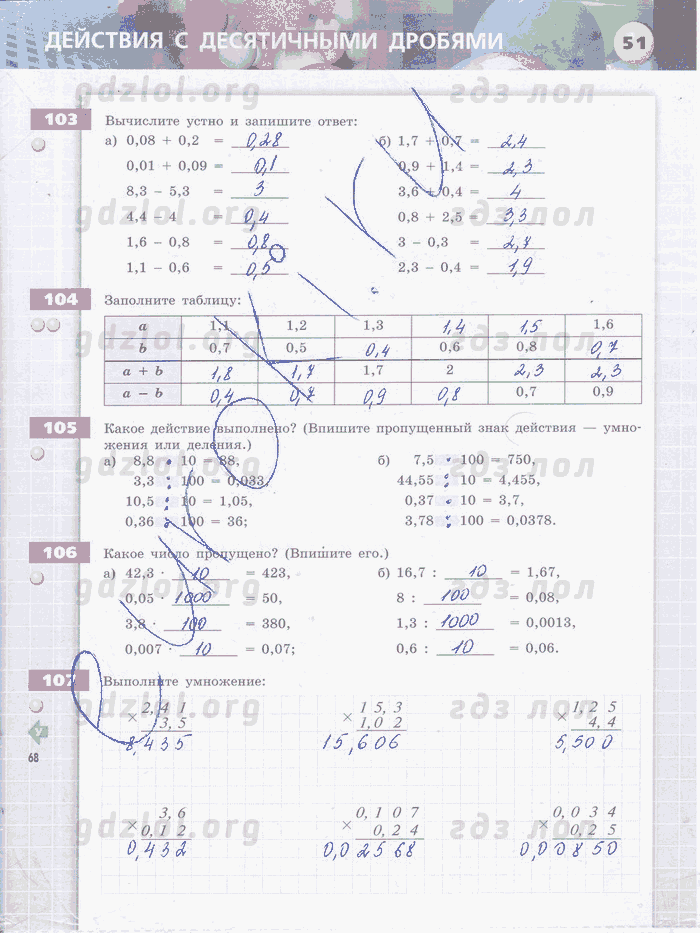 ДЕЙСТВИЯ С ДЕСЯТИЧНЫМИ ДРОБЯМИ 51
gdzlol.org гдз лол
103 Вычислите устно и запишите ответ:
а) 0,08 + 0,2 = 0,28 б) 1,7 + 0,7 = 2,4
0,01 + 0,09 = 0,1 0,9 + 1,4 = 2,3
8,3 − 5,3 = 3 3,6 + 0,4 = 4
gdzlol.org гдз лол
4,4 − 4 = 0,4 0,8 + 2,5 = 3,3
1,6 − 0,8 = 0,8 3 − 0,3 = 2,7
1,1 − 0,6 = 0,5 2,3 − 0,4 = 1,9
104 Заполните таблицу:
a 1,1 1,2 1,3 1,4 1,5 1,6
gdzlol.org гдз лол
b 0,7 0,5 0,4 0,6 0,8 0,7
a + b 1,8 1,7 1,7 2 2,3 2,3
a − b 0,4 0,7 0,9 0,8 0,7 0,9
105 Какое действие выполнено? (Впишите пропущенный знак действия — умно-
жения или деления.)
gdzlol.org гдз лол
а) 8,8 · 10 = 88, б) 7,5 · 100 = 750,
3,3 : 100 = 0,033, 44,55 : 10 = 4,455,
10,5 : 10 = 1,05, 0,37 · 10 = 3,7,
0,36 · 100 = 36; 3,78 : 100 = 0,0378.
106 Какое число пропущено? (Впишите его.)
а) 42,3 · 10 = 423, б) 16,7 : 10 = 1,67,
gdzlol.org гдз лол
0,05 · 1000 = 50, 8 : 100 = 0,08,
3,8 · 100 = 380, 1,3 : 1000 = 0,0013,
0,007 · 10 = 0,07; 0,6 : 10 = 0,06.
107 Выполните умножение:
gdzlol.org гдз лол
2,41 15,3 1,25
× 3,5 × 1,02 × 4,4
8,435 15,606 5,500
У
68
3,6 0,107 0,034
gdzlol.org гдз лол
× 0,12 × 0,24 × 0,25
0,432 0,02568 0,00850